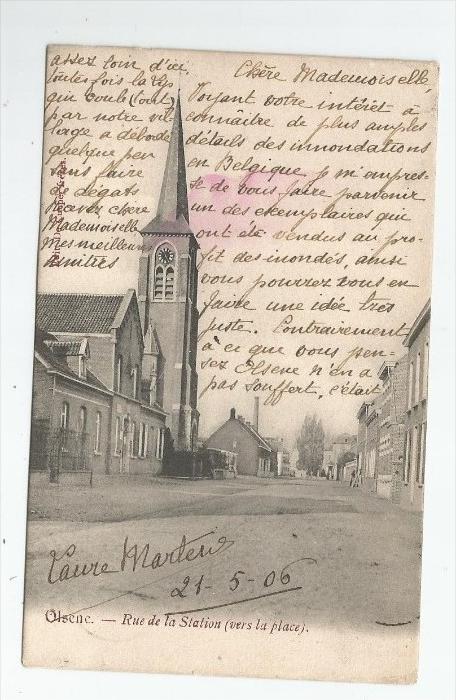 Chère Mademoiselle,
Voyant votre intérêt à
connaître de plus amples
détails des innondations
en Belgique je m'empres-
se de vous faire parvenir
un des exemplaires qui
ont été vendus au pro-
fit des inondés, ainsi
vous pourrez vous en
faire une idée très
juste. Contrairement
à ce que vous pen-
sez Olsene n'en a
pas souffert, c'était
assez loin d'ici
toutes fois la Lys
qui coule (tout)
par notre vil-
lage a débordé
quelque peu
sans faire
de dégats
Recevez chère
Mademoiselle
mes meilleurs
Laure Martens
21-5-06
Olsene. — Rue de la Station (vers la place).